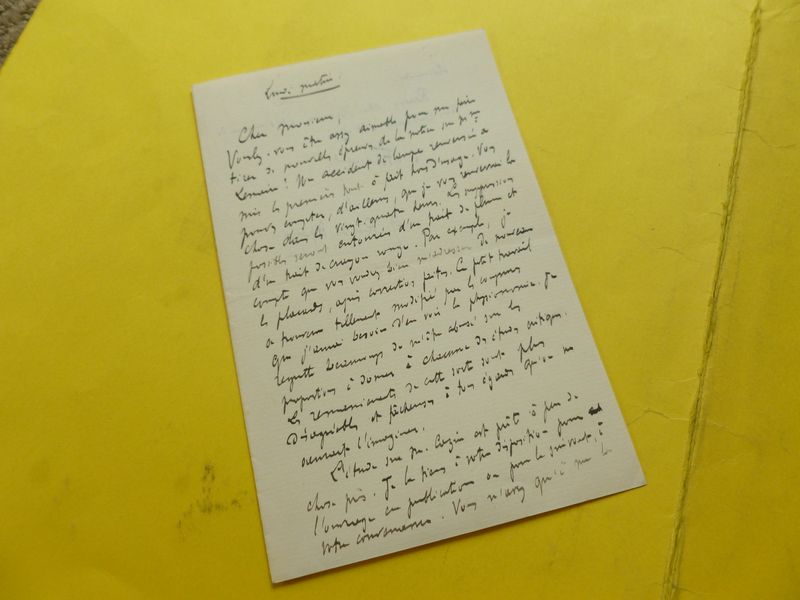 Lundi matin.
Cher Monsieur,
Voulez-vous être assez aimable pour me faire
tirer de nouvelles épreuves de la notice sur Mme
Lemaire? Un accident de lampe renversée a
mis les premières tout à fait hors d'usage. Vous
pouvez compter, d'ailleurs, que je vous renverrai la
chose dans les vingt-quatre heures. Les suppressions
possibles seront entourées d'un trait de plume et
d'un trait de crayon rouge. Par exemple, je
compte que vous voudrez bien m'adresser de nouveau
les placards, après corrections faites. Ce petit travail
se trouvera tellement modifié par les coupures
que j'aurai besoin d'en voir la physionomie. Je
regrette beaucoup de m'être abusé sur les
proportions à donner à chacune des études critiques.
Les remaniements de cette sorte sont plus
désagréables et fâcheux à tous égards qu'on ne
saurait l'imaginer.
L'étude sur M. Cazin est prête à peu de
chose près. Je la tiens à votre disposition pour
l'ouvrage en publication ou pour le suivant, à
votre convenance. Vous n'avez qu'à me le